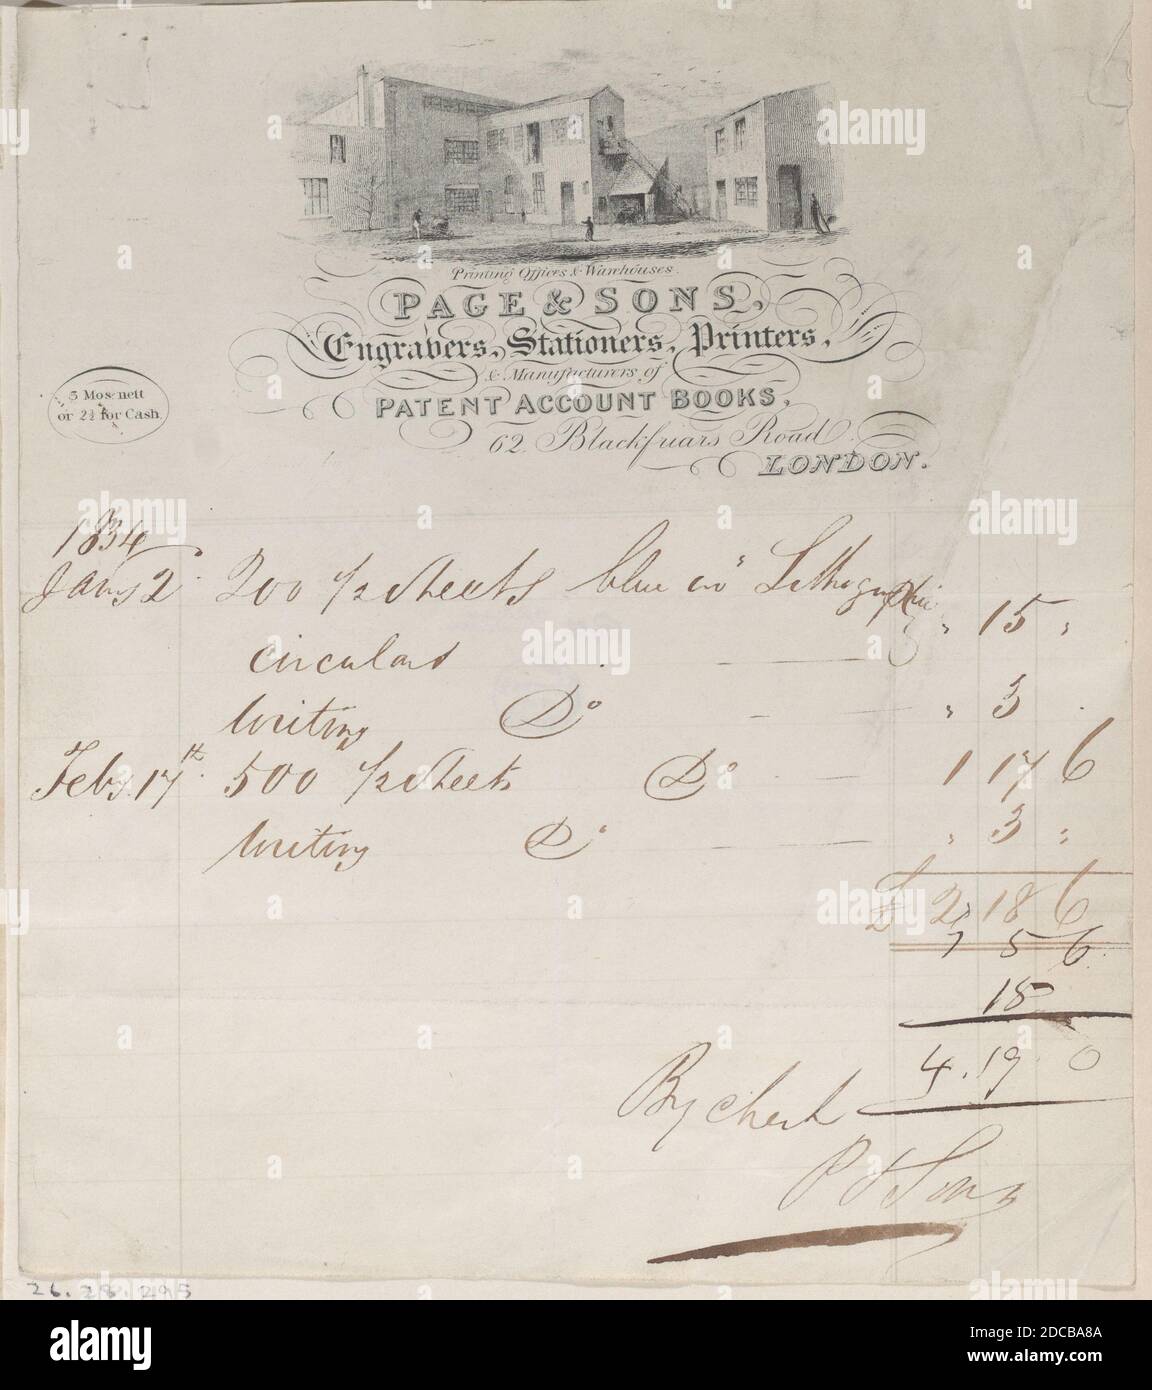 Printing Offices & Warehouses.
PAGE & SONS,
Engravers, Stationers, Printers,
& Manufacturers of
PATENT ACCOUNT BOOKS,
62. Blackfriars Road
LONDON.
5 Mos. nett
or 2½ for Cash.
1834
Jany 2 200 ½ sheets blue Lithographic
circulars " 15 "
Writing Do " 3
Feby. 17th 500 ½ sheets Do 1 17 6
Writing Do " 3 "
£ 2 18 6
5 6
18
4. 19 0
By check
P & Sons
26. 28. 295
alamy
alamy
Image ID: 2DCBA8A
www.alamy.com